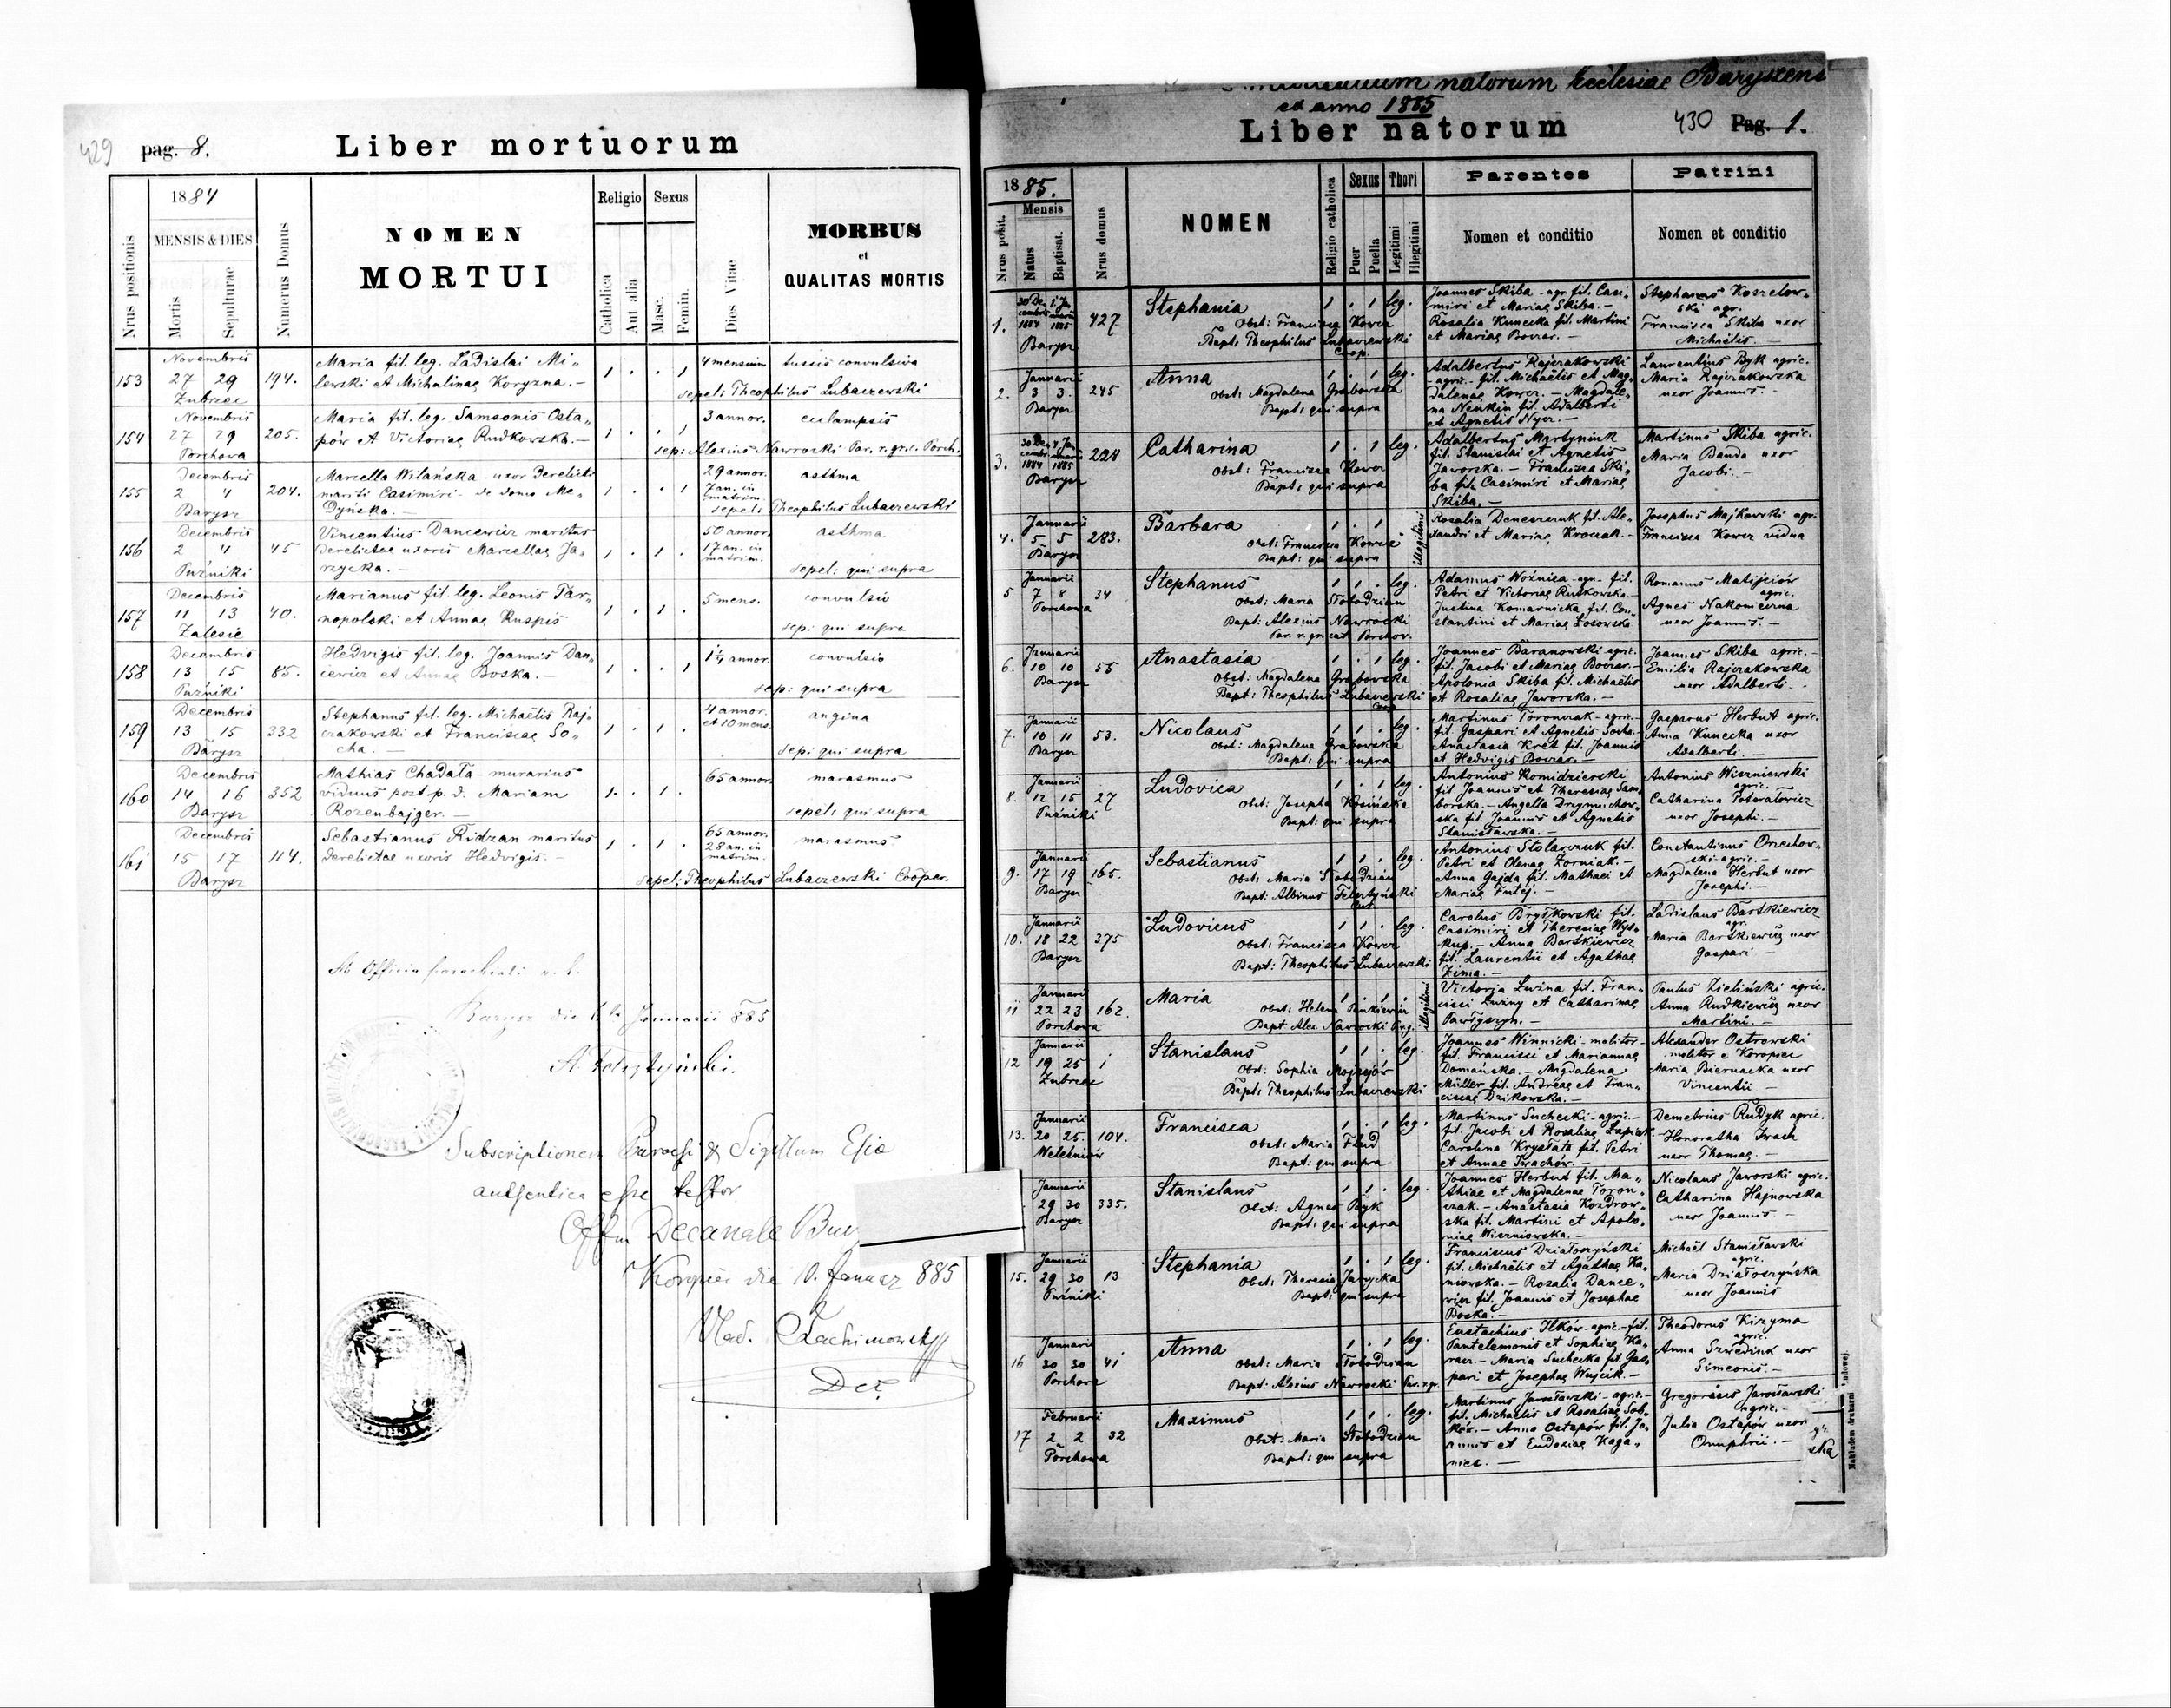 429 pag. 8.
Liber mortuorum
1884
MENSIS & DIES
Nrus positionis
Moris
Sepulturae
Numerus Domus
NOMEN
MORTUI
Religio
Catholica
Aut alia
Sexus
Masc.
Femin.
Dies Vitae
MORBUS
et
QUALITAS MORTIS
Novembris
153 27 29 194.
Zubrzec
Maria fil. leg. Ladislai Mi„
lewski et Michalinae Koryzna.—
1 . . 1
4 mensium tussis convulsiva
sepel: Theophilus Lubaczewski
Novembris
154 27 29 205.
Porchova
Maria fil. leg. Samsonis Osta„
pów et Victoriae Rudkowska.—
1 . . 1
3 annor. eclampsis
sep: Alexius Nawrocki Par. r. gr. Porch.
Decembris
155 2 4 204.
Barysz
Marcella Wilańska uxor derelicti
mariti Casimiri de domo Me„
dyńska.—
1 . . 1
29 annor. asthma
7 an. in
matrim.
sepel: Theophilus Lubaczewski
Decembris
156 2 4 45
Puźniki
Vincentius Dancewicz maritus
derelictae uxoris Marcellae Ja„
rzycka.—
1 . 1 .
50 annor. asthma
17 an. in
matrim.
sepel: qui supra
Decembris
157 11 13 40.
Zalesie
Marianus fil. leg. Leonis Tar„
nopolski et Annae Kuspis
1 . 1 .
5 mens. convulsio
sep: qui supra
Decembris
158 13 15 85.
Puźniki
Hedvigis fil. leg. Joannis Dan„
cewicz et Annae Boska.—
1 . . 1
1¼ annor. convulsio
sep: qui supra
Decembris
159 13 15 332
Barysz
Stephanus fil. leg. Michaëlis Raj„
czakowski et Franciscae So„
cha.—
1 . 1 .
4 annor. angina
et 10 mens.
sep: qui supra
Decembris
160 14 16 352
Barysz
Mathias Chadała murarius
viduus post p. d. Mariam
Rozenbajger.—
1 . 1 .
65 annor. marasmus
sepel: qui supra
Decembris
161 15 17 114.
Barysz
Sebastianus Ridzan maritus
derelictae uxoris Hedvigis.—
1 . 1 .
65 annor. marasmus
28 an. in
matrim.
sepel: Theophilus Lubaczewski Cooper.
Ab Officio parochiali r. l.
Barysz die Januarii 885
Subscriptionem Parochi & Sigillum Eccle
authentica esse testor
Offm Decanale
die 10. Januar 885
Dec.
natorum Ecclesiae Baryszens
ex anno 1885
Liber natorum
430 Pag. 1.
1885.
Mensis
Nrus posit.
Natus
Baptisat.
Nrus domus
NOMEN
Religio catholica
Sexus
Puer
Puella
Thori
Legitimi
Illegitimi
Parentes
Nomen et conditio
Patrini
Nomen et conditio
1. 30 De„ 1 Ja
cembris nuarii
1884 1885
Barysz
427
Stephania
Obst: Francisca Kowcz
Bapt: Theophilus Lubaczewski
Coop.
1 . 1 leg.
Joannes Skiba agr. fil. Casi„
miri et Mariae Skiba.—
Rosalia Kunecka fil. Martini
et Mariae Bowar.—
Stephanus Koszelow„
ski agr.
Francisca Skiba uxor
Michaëlis.
Januarii
2. 3 3. 245
Barysz
Anna
Obst: Magdalena Grabowska
Bapt: qui supra
1 . 1 leg.
Adalbertus Rajczakowski
agric. fil. Michaëlis et Mag„
dalenae Kowcz.— Magdale„
na Neukin fil. Adalberti
et Agnetis Nycz.—
Laurentius Byk agric.
Maria Rajczakowska
uxor Joannis.—
3. 30 De 4 Jan
cembr. nuarii
1884 1885
Barysz
228
Catharina
Obst: Francisca Kowcz
Bapt: qui supra
1 . 1 leg.
Adalbertus Martyniuk
fil. Stanislai et Agnetis
Jaworska.— Francisca Ski„
ba fil. Casimiri et Mariae
Skiba.—
Martinus Skiba agric.
Maria Banda uxor
Jacobi.—
Januarii
4. 5 5 283.
Barysz
Barbara
Obst: Francisca Kowcz
Bapt: qui supra
1 . 1 illegitimi
Rosalia Deneszczuk fil. Ale„
xandri et Mariae Kroczak.—
Josephus Majkowski agr.
Francisca Kowcz vidua
Januarii
5. 7 8 34
Porchowa
Stephanus
Obst: Maria Słobodzian
Bapt: Alexius Nawrocki
Par. r. gr. cat. Porchov.
1 1 . leg.
Adamus Woźnica agr. fil.
Petri et Victoriae Rutkowska.
Justina Komarnicka fil. Con„
stantini et Mariae Łosowska
Romanus Matijciów
agric.
Agnes Nakonieczna
uxor Joannis.—
Januarii
6. 10 10 55
Barysz
Anastasia
Obst: Magdalena Grabowska
Bapt: Theophilus Lubaczewski
Coop.
1 . 1 leg.
Joannes Baranowski agric.
fil. Jacobi et Mariae Bowar.—
Apolonia Skiba fil. Michaëlis
et Rosaliae Jaworska.—
Joannes Skiba agric.
Emilia Rajczakowska
uxor Adalberti.
Januarii
7. 10 11 53.
Barysz
Nicolaus
Obst: Magdalena Grabowska
Bapt: qui supra
1 1 . leg.
Martinus Toronczak agric.
fil. Gaspari et Agnetis Socha.
Anastasia Kret fil. Joannis
et Hedvigis Bowar.—
Gasparus Herbut agric.
Anna Kunecka uxor
Adalberti.—
Januarii
8. 12 15 27
Puźniki
Ludovica
Obst: Josepha Kosińska
Bapt: qui supra
1 . 1 leg.
Antonius Romidzierski
fil. Joannis et Theresiae Sam„
borska.— Angella Drymuchow„
ska fil. Joannis et Agnetis
Stanisławska.—
Antonius Wiszniewski
agric.
Catharina Potoratowicz
uxor Josephi.—
Januarii
9. 17 19 165.
Barysz
Sebastianus
Obst: Maria Słobodzian
Bapt: Albinus Felsztyński
1 1 . leg.
Antonius Stolarczuk fil.
Petri et Olenae Zorniak.—
Anna Gajda fil. Mathaei et
Mariae Futej.—
Constantinus Orzechow„
ski agric.—
Magdalena Herbut uxor
Josephi.—
Januarii
10. 18 22 375
Barysz
Ludovicus
Obst: Francisca Kowcz
Bapt: Theophilus Lubaczewski
1 1 . leg.
Carolus Bryłkowski fil.
Casimiri et Theresiae Wys„
kup.— Anna Bartkiewicz
fil. Laurentii et Agathae
Zima.—
Ladislaus Bartkiewicz
agr.
Maria Bartkiewicz uxor
Gaspari—
Januarii
11 22 23 162.
Porchowa
Maria
Obst: Helena Pankiewicz
Bapt Alex. Nawrocki
illegitimi
Victoria Luzina fil. Fran„
cisci Luziny et Catharinae
Pawłyszyn.—
Paulus Zieliński agric.
Anna Rudkiewicz uxor
Martini.—
Januarii
12 19 25 1
Zubrzec
Stanislaus
Obst: Sophia Mojzejów
Bapt: Theophilus Lubaczewski
1 1 . leg.
Joannes Winnicki molitor
fil. Francisci et Mariannae
Domańska.— Magdalena
Müller fil. Andreae et Fran„
ciscae Dzikowska.—
Alexander Ostrowski
molitor e Koropiec
Maria Biernacka uxor
Vincentii—
Januarii
13. 20 25. 104.
Weleśniów
Francisca
Obst: Maria Flud
Bapt: qui supra
1 . 1 leg.
Martinus Suchecki agric.—
fil. Jacobi et Rosaliae Łapiak
Carolina Kryształa fil. Petri
et Annae Trachor.—
Demetrius Rudyk agric.
Honoratha Iwach
uxor Thomae.—
Januarii
29 30 335.
Barysz
Stanislaus
Obst: Agnes Byk
Bapt: qui supra
1 1 . leg.
Joannes Herbut fil. Ma„
thiae et Magdalenae Toron„
czak.— Anastasia Kozdrow„
ska fil. Martini et Apolo„
niae Wiszniowska.—
Nicolaus Jaworski agric.
Catharina Hajnowska
uxor Joannis—
Januarii
15. 29 30 13
Puźniki
Stephania
Obst: Theresia Jarzycka
Bapt: qui supra
1 . 1 leg.
Franciscus Działoszyński
fil. Michaëlis et Agathae Ka„
niowska.— Rosalia Dance„
wicz fil. Joannis et Josephae
Boska.—
Michaël Stanisławski
agric.
Maria Działoszyńska
uxor Joannis
Januarii
16 30 30 41
Porchova
Anna
Obst: Maria Słobodzian
Bapt: Alexius Nawrocki Par. r. gr.
1 . 1 leg.
Eustachius Ilków agric. fil.
Pantelemonis et Sophiae Ka„
racz.— Maria Suchecka fil. Gas„
pari et Josephae Wujcik.—
Theodorus Kizyma
agric.
Anna Szwediuk uxor
Simeonis.—
Februarii
17 2 2 32
Porchowa
Maximus
Obst: Maria Słobodzian
Bapt: qui supra
1 1 . leg.
Martinus Jarosławski agric.—
fil. Michaëlis et Rosaliae Sob„
ków.— Anna Ostapów fil. Jo„
annis et Eudoxiae Kaga„
niec.—
Gregorius Jarosławski
agric.—
Julia Ostapów uxor
Onuphrii.—
ska
Nakładem drukarni